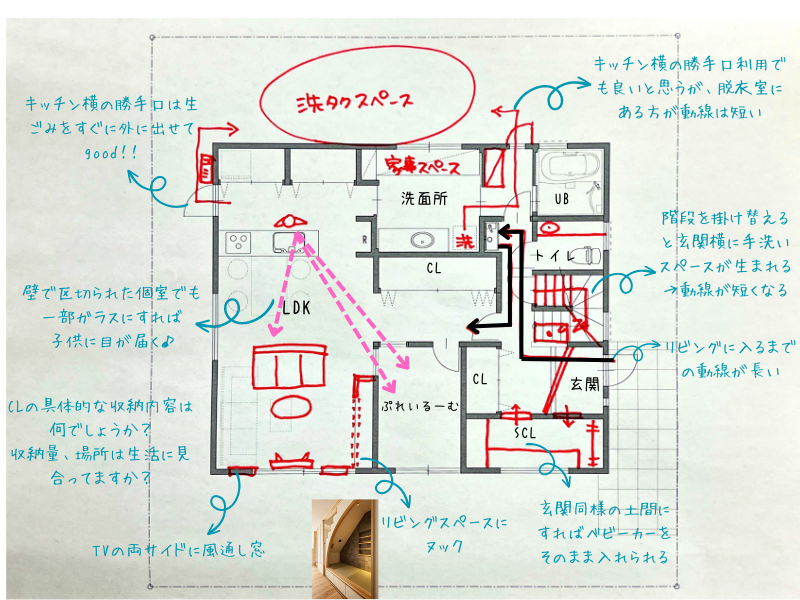 洗タクスペース
キッチン横の勝手口利用で
も良いと思うが、脱衣室に
ある方が動線は短い
キッチン横の勝手口は生
ごみをすぐに外に出せて
good!!
家事スペース
洗面所
UB
洗
トイレ
R
CL
階段を掛け替える
と玄関横に手洗い
スペースが生まれる
→動線が短くなる
壁で区切られた個室でも
一部ガラスにすれば
子供に目が届く♪
LDK
リビングに入るまで
の動線が長い
CL
玄関
ぷれいるーむ
CLの具体的な収納内容は
何でしょうか?
収納量、場所は生活に見
合ってますか?
SCL
玄関同様の土間に
すればベビーカーを
そのまま入れられる
リビングスペースに
ヌック
TVの両サイドに風通し窓